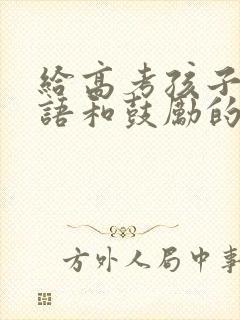 給高考孩子
語和鼓勵的
方外人局中事